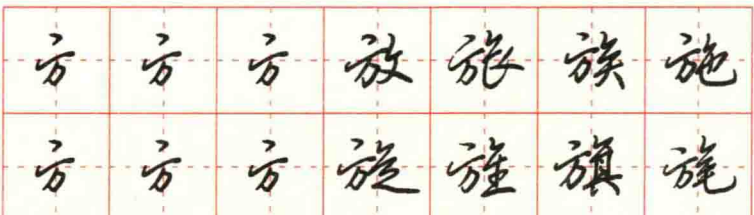 方方方放旅族施
方方方旋旌旗旄